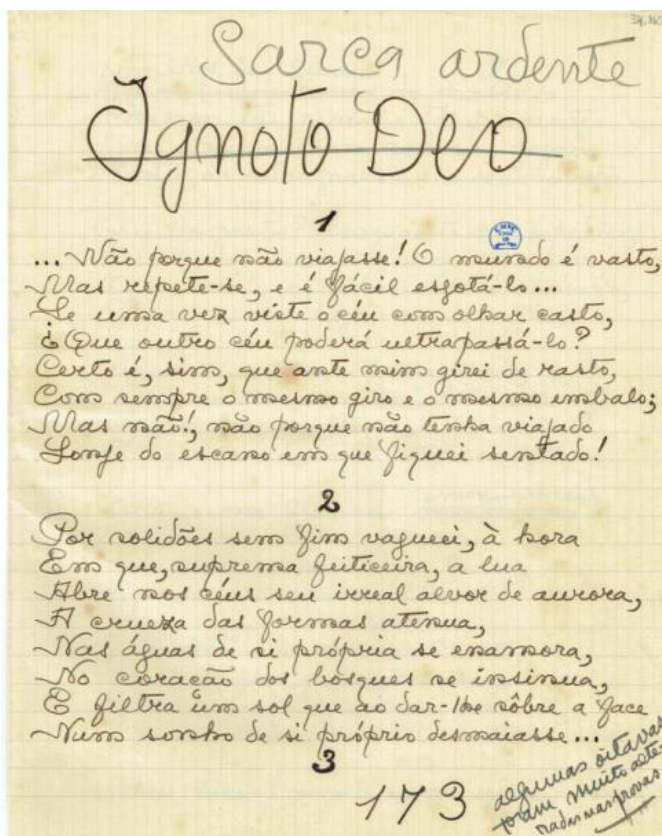 Sarça ardente
Ignoto Deo
1
...Não porque não viajasse! O mundo é vasto,
Mas repete-se, e é fácil esgotá-lo...
Se uma vez viste o céu com olhar casto,
¿Que outro céu poderá ultrapassá-lo?
Certo é, sim, que ante mim girei de rasto,
Com sempre o mesmo giro e o mesmo embalo;
Mas não!, não porque não tenha viajado
Longe do escano em que fiquei sentado!
2
Por solidões sem fim vagueei, à hora
Em que, suprema feiticeira, a lua
Abre nos céus seu irreal alvor de aurora,
A crueza das formas atenua,
Nas águas de si própria se enamora,
No coração dos bosques se insinua,
E filtra um sol que ao dar-lhe sôbre a face
Num sonho de si próprio desmaiasse...
3
173
algumas oitavas
foram muito alte-
radas nas provas